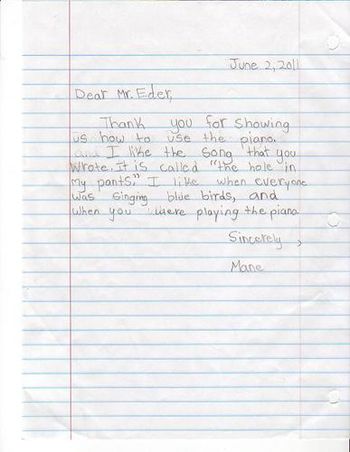 June 2, 2011
Dear Mr. Eder,
Thank you for showing
us how to use the piano.
and I like the song that you
wrote. It is called "the hole in
my pants." I like when everyone
was singing blue birds, and
when you were playing the piano
Sincerely,
Mane